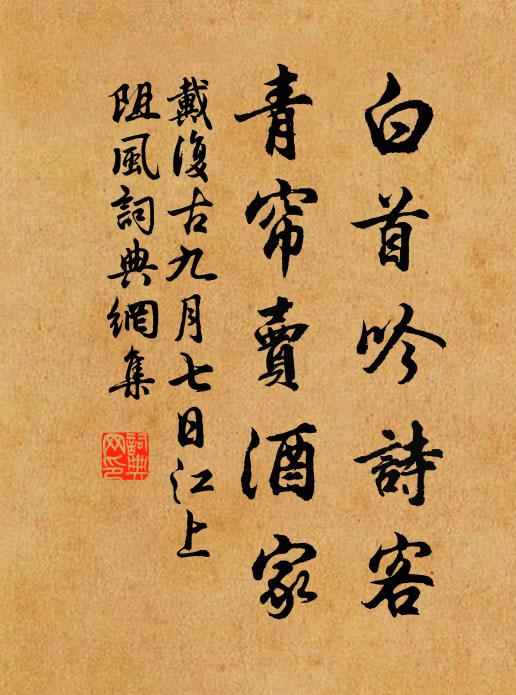 白首吟詩客
青帘賣酒家
戴復古九月七日江上
阻風詞典網集
詞典网印